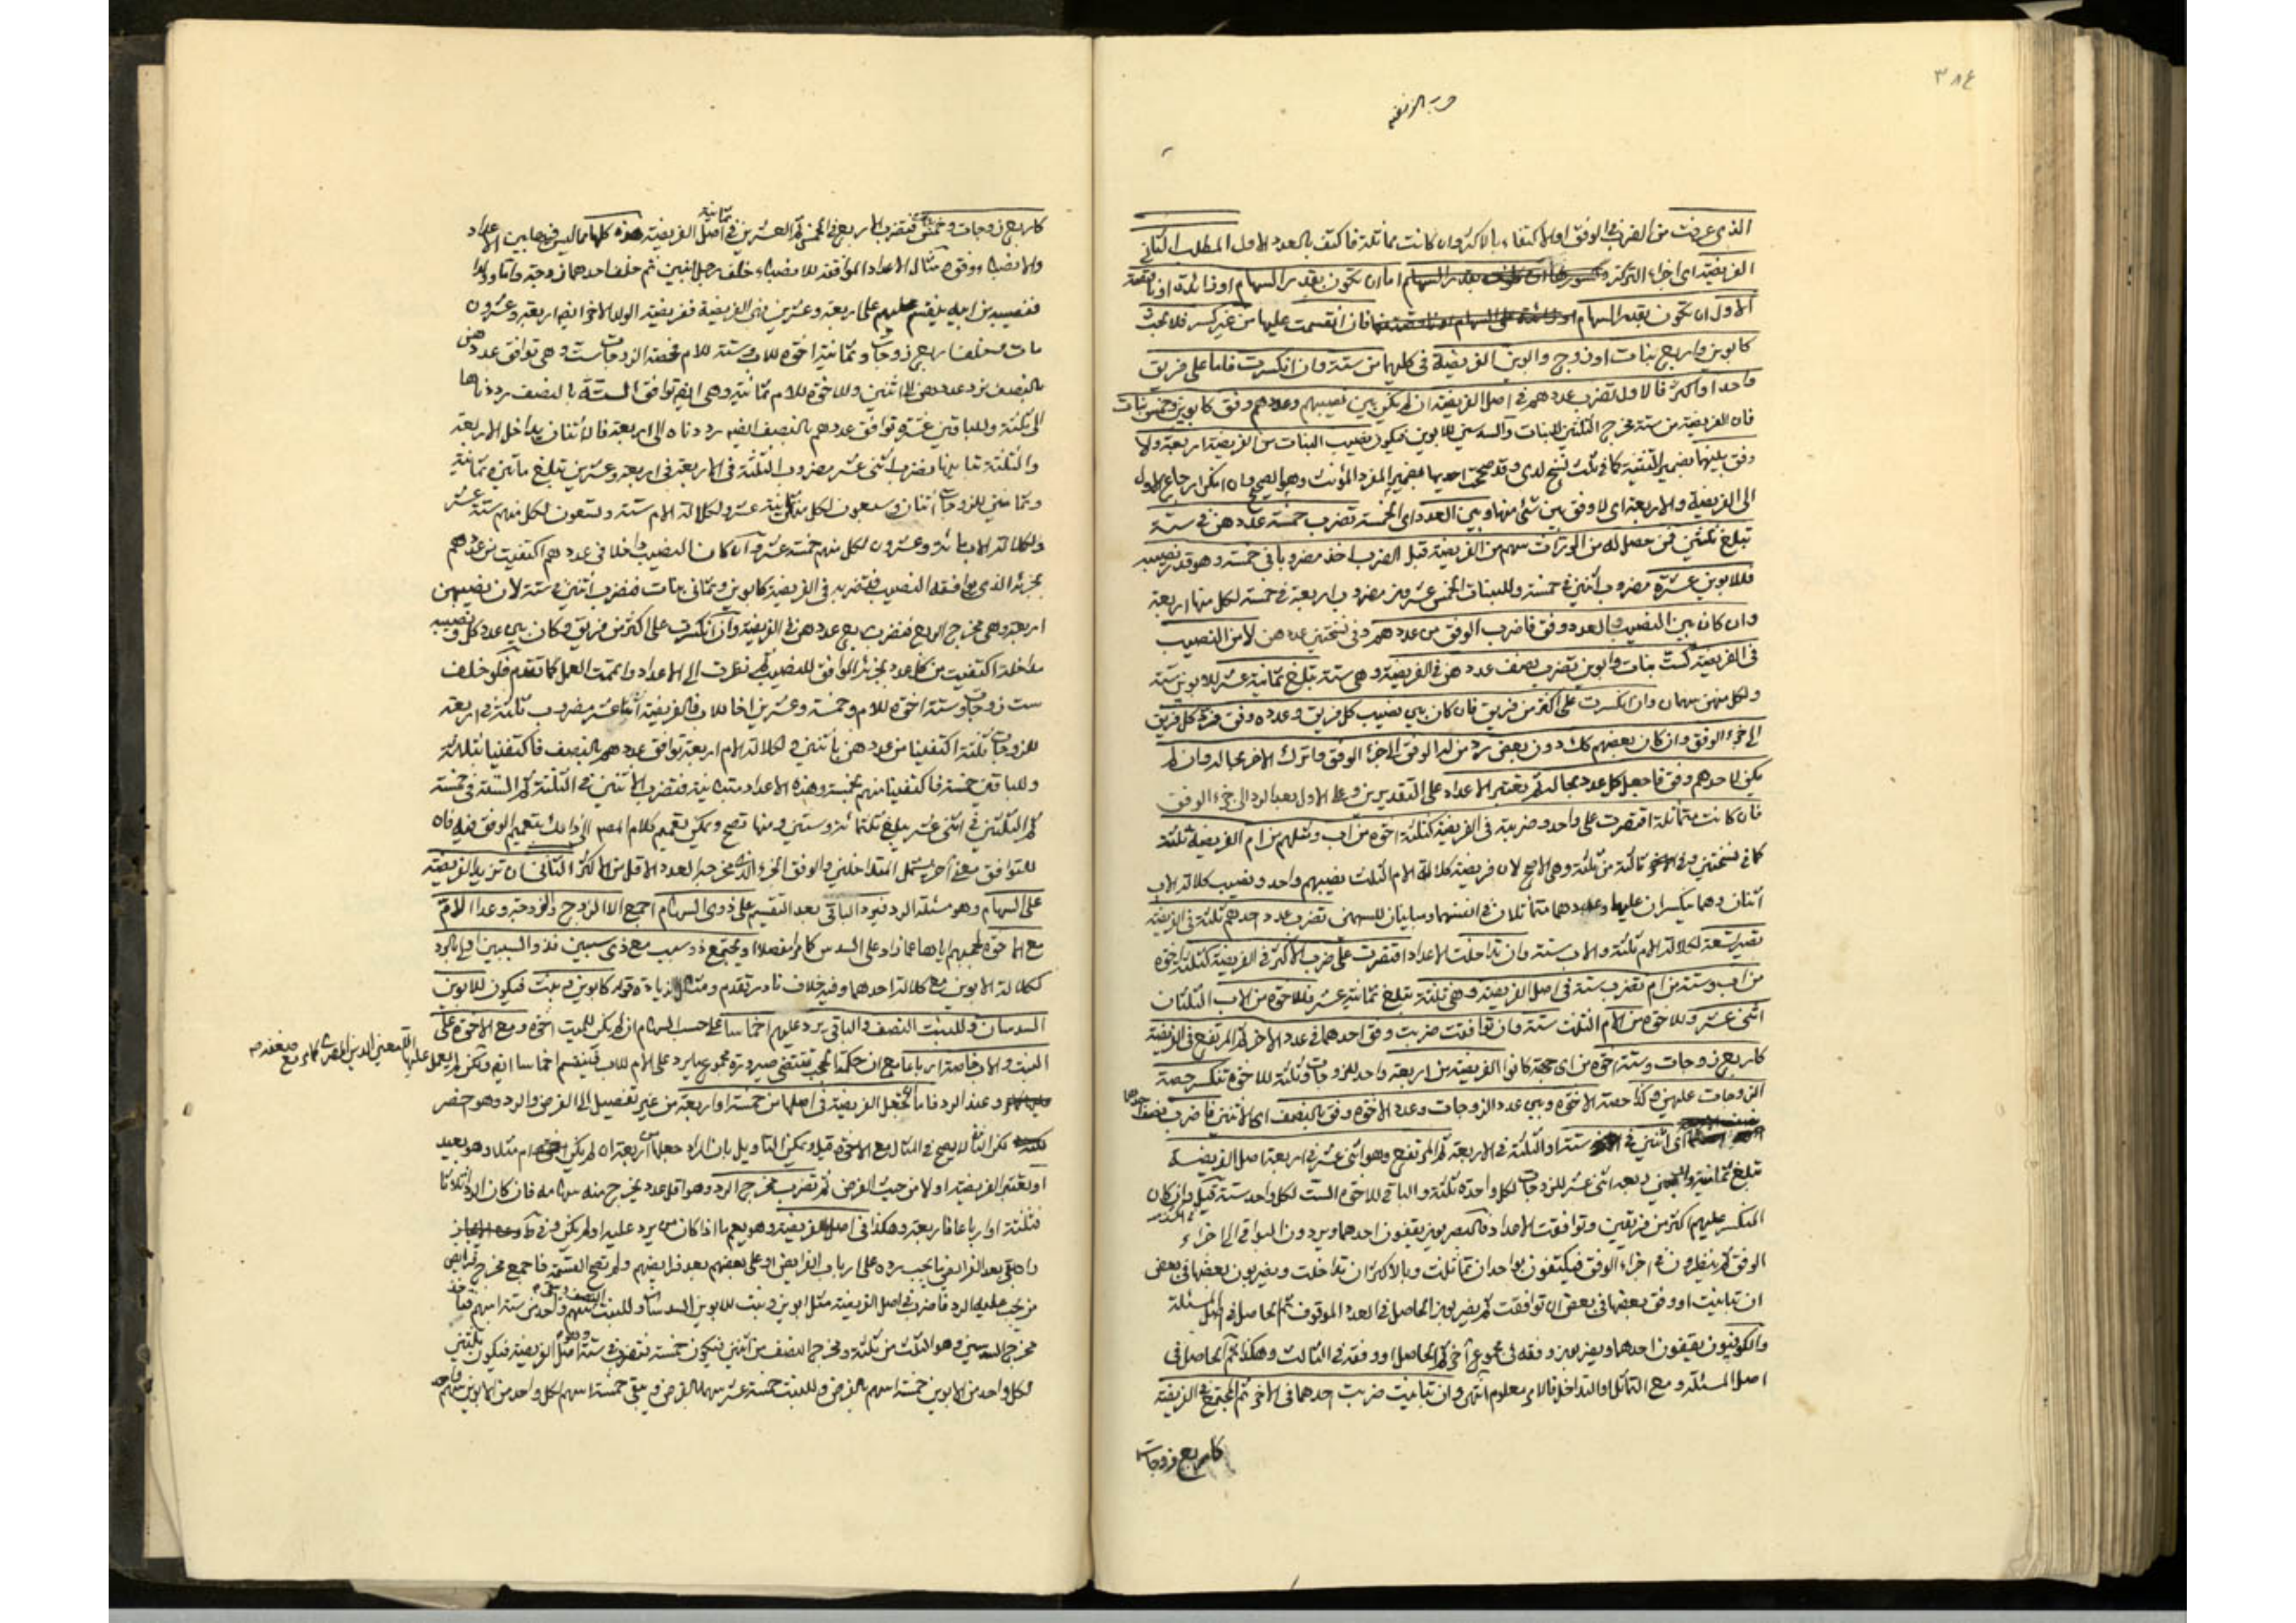 ٣٨٤
الذي عرفت من الضرب في الوفق او الاكتفاء بالاكثر وان كانت متماثلة فاكتف بالعدد الاول المطلب الثاني
الفريضة اي اجزاء التركة اما ان تكون بقدر السهام او زائدة او ناقصة
الاول ان تكون بقدر السهام فان انقسمت عليها من غير كسر فلا بحث
كابوين واربع بنات او زوج وابوين الفريضة في كليهما من ستة وان انكسرت فاما على فريق
واحد او اكثر فالاول تضرب عددهم في اصل الفريضة ان لم يكن بين نصيبهم وعددهم وفق كابوين وخمس بنات
فان الفريضة من ستة مخرج الثلثين للبنات والسدسين للابوين فيكون نصيب البنات من الفريضة اربعة ولا
وفق بينها بضمير التثنية كما في ثلث نسخ لدي وقد صححت احديها بضمير المفرد المؤنث وهو الصحيح وان امكن ارجاع الاول
الى الفريضة والاربعة اي لا وفق بين شئ منها وبين العدد اي الخمسة تضرب خمسة عددهن في ستة
تبلغ ثلثين فمن حصل له من الوراث سهم من الفريضة قبل الضرب اخذ مضروبا في خمسة وهو قدر نصيبه
فللابوين عشرة مضروب اثنين في خمسة وللبنات الخمس عشرون مضروب اربعة في خمسة لكل منها اربعة
وان كان بين النصيب والعدد وفق فاضرب الوفق من عددهم وفي نسختين عددهن لا من النصيب
في الفريضة كست بنات وابوين تضرب نصف عددهن في الفريضة وهي ستة تبلغ ثمانية عشر للابوين ستة
ولكل منهن سهمان وان انكسرت على اكثر من فريق فان كان بين نصيب كل فريق وعدده وفق فرد كل فريق
الى جزء الوفق وان كان بعضهم كك دون بعض رد من له الوفق الى جزء الوفق واترك الاخر بحاله وان لم
يكن لاحدهم وفق فاجعل كل عدد بحاله ثم تعتبر الاعداد على التقديرين وعلى الاول بعد الرد الى جزء الوفق
فان كانت متماثلة اقتصرت على واحد وضربته في الفريضة كثلثة اخوة من اب ومثلهم من ام الفريضة ثلثة
كما في نسختين وفي ثالثة من ثلثة وهي الاصح لان فريضة كلالة الام الثلث نصيبهم واحد ونصيب كلالة الاب
اثنان وهما منكسران عليهما وعددهما متماثلان في انفسهما ومباينان للسهمين تضرب عدد احدهم ثلثة في الفريضة
تصير تسعة لكلالة الام ثلثة والاب ستة وان تداخلت الاعداد اقتصرت على ضرب الاكثر في الفريضة كثلثة اخوة
من اب وستة من ام تضرب ستة في اصل الفريضة وهي ثلثة تبلغ ثمانية عشر فللاخوة من الاب الثلثان
اثنى عشر وللاخوة من الام الثلث ستة وان توافقت ضربت وفق احدهما في عدد الاخر ثم المرتفع في الفريضة
كاربع زوجات وستة اخوة من اي جهة كانوا الفريضة من اربعة واحد للزوجات وثلثة للاخوة تنكسر حصة
الزوجات عليهن وكذا حصة الاخوة وبين عدد الزوجات وعدد الاخوة وفق بالنصف اي الاثنين فاضرب نصف احدهما
اي اثنين في ستة او الثلثة في الاربعة ثم المرتفع وهو اثنى عشر في اربعة اصل الفريضة
تبلغ ثمانية واربعين ربعه اثنى عشر للزوجات لكل واحدة ثلثة والباقي للاخوة الست لكل واحد ستة قيل وان كان
المنكسر عليهم اكثر من فريقين وتوافقت الاعداد فالبصريون يقفون احدهما ويردون البواقي الى اجزاء
الوفق ثم ينظرون في اجزاء الوفق فيكتفون بواحد ان تماثلت وبالاكثر ان تداخلت ويضربون بعضها في بعض
ان تباينت او وفق بعضها في بعض ان توافقت ثم يضربون الحاصل في العدد الموقوف ثم الحاصل في اصل المسئلة
والكوفيون يقفون احدهما ويضربون وفقه في مجموع آخر ثم الحاصل او وفقه في الثالث وهكذا ثم الحاصل في
اصل المسئلة ومع التماثل او التداخل فالامر معلوم انتهى وان تباينت ضربت احدهما في الاخر ثم المجتمع في الفريضة
كاربع زوجات
كاربع زوجات وخمس فتضرب الاربع في الخمس ثم العشرين في اصل الفريضة ثمانية هذه كلها مما ليس فيها بين الاعداد
والانصباء وفق ومثال الاعداد الموافقة للانصباء خلف رجل ابنين ثم خلف احدهما زوجة وابنا
فنصيبه من ابيه ينقسم على اربعة وعشرين هي الفريضة ففريضة الولد الاخر ايضا اربعة وعشرون
مات وخلف اربع زوجات وثمانية اخوة للاب وستة للام فحصة الزوجات ست وهي توافق عددهن
بالنصف نرد عددهن الى اثنين وللاخوة للام ثمانية وهي ايضا توافق الستة بالنصف رددناها
الى ثلثة وللباقين عشرة توافق عددهم بالنصف ايضا رددناه الى اربعة فالاثنان يداخل الاربعة
والثلثة تباينها فتضرب اثنى عشر مضروب الثلثة في الاربعة في اربعة وعشرين تبلغ مأتين وثمانية
وثمانين للزوجات اثنان وسبعون لكل منهن ثمانية عشر ولكلالة الام ستة وتسعون لكل منهم ستة عشر
ولكلالة الاب مائة وعشرون لكل منهم خمسة عشر وان كان النصيب داخلا في عددهم اكتفيت من عددهم
بجزئه الذي يوافقه النصيب فتضربه في الفريضة كابوين وثماني بنات فتضرب اثنين في ستة لان نصيبهن
اربعة وهي مخرج الربع فتضرب ربع عددهن في الفريضة وان انكسرت على اكثر من فريق وكان بين عدد كل ونصيبه
مداخلة اكتفيت من كل عدد بجزئه الموافق للنصيب ثم نظرت الى الاعداد واتممت العمل كما تقدم فلو خلف
ست زوجات وستة اخوة للام وخمسة وعشرين اخا للاب فالفريضة اثنا عشر مضروب ثلثة في اربعة
للزوجات ثلثة اكتفينا من عددهن باثنين ولكلالة الام اربعة توافق عددهم بالنصف فاكتفينا بثلاثة
وللباقين خمسة فاكتفينا منهم بخمسة وهذه الاعداد متباينة فتضرب الاثنين في الثلثة ثم الستة في خمسة
ثم الثلثين في اثنى عشر يبلغ ثلثمائة وستين ومنها تصح ويمكن تعميم كلام المصنف لذلك بتعميم الوفق فيه فان
للتوافق معنى آخر يشمل المتداخلين والوفق الجزء الذي مخرجه العدد الاقل من الاكثر الثاني ان تزيد الفريضة
على السهام وهو مسئلة الرد فيرد الباقي بعد التقسيم على ذوي السهام اجمع الا الزوج والزوجة وعدا الام
مع الاخوة لحجبهم اياها عما زاد على السدس كما مر مفصلا او يجتمع ذو سبب مع ذي سببين فذو السببين احق بالرد
ككلالة الابوين مع كلالة احدهما وفيه خلاف نادر تقدم ومثال الزيادة قوله كابوين وبنت فيكون للابوين
السدسان وللبنت النصف والباقي يرد عليهم اخماسا على حسب السهام ان لم يكن للميت اخوة ومع الاخوة على
البنت والاب خاصة ارباعا
وعند الرد فاما تجعل الفريضة في اصلها من خمسة او اربعة من غير تفصيل الى الفرض والرد وهو اخصر
لكن لا يصح في المثال مع الاخوة قيل ويمكن التاويل بان المراد جعلها من اربعة ان لم يكن ام مثلا وهو بعيد
او تعتبر الفريضة اولا من حيث الفرض ثم تضرب مخرج الرد وهو اقل عدد يخرج منه سهامه فان كان الرد اثلاثا
فثلثة او ارباعا فاربعة وهكذا في اصل الفريضة
وان بقي بعد الفرائض ما يجب رده على ارباب الفرائض او على بعضهم بعد فرائضهم ولم تصح القسمة فاجمع مخرج فرائض
من يجب عليه الرد فاضرب في اصل الفريضة مثل ابوين وبنت للابوين السدسان وللبنت النصف ويبقى واحد من ستة
مخرج السدسين وهو الثلث من ثلثة ومخرج النصف من اثنين فيكون خمسة فتضرب في ستة وهو اصل الفريضة فيكون ثلثين
لكل واحد من الابوين خمسة اسهم بالفرض وللبنت خمسة عشر سهما بالفرض ويبقى خمسة اسهم لكل واحد من الابوين سهم واحد